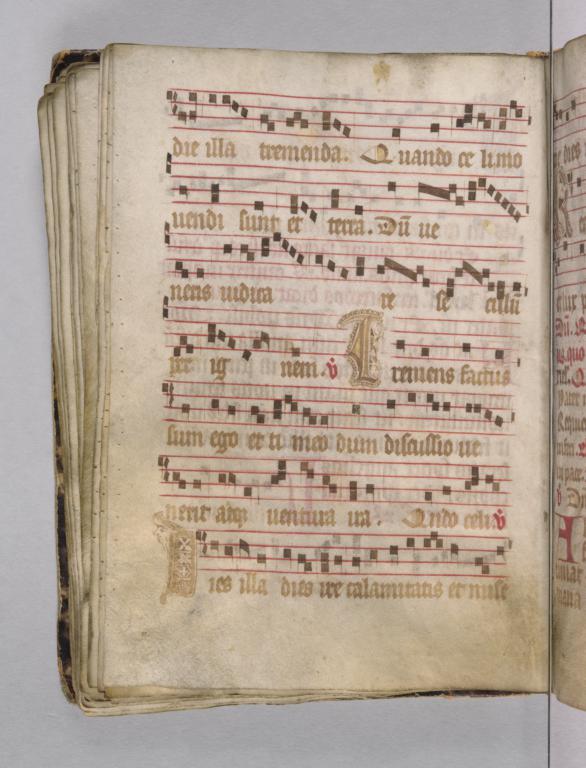 die illa tremenda. Quando ce li mo
uendi sunt et terra. Dū ue
nens iudica re se culū
per ig nem. v̄ Tremens factus
sum ego et ti meo dum discussio ue
nerit atqꝫ uentura ira. Qn̄do celi v̄
Dies illa dies ire calamitatis et mise